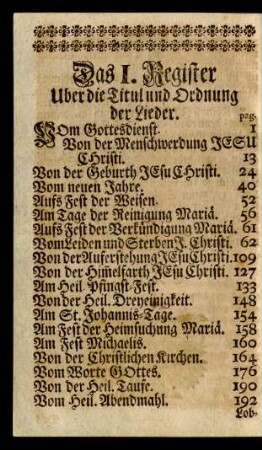 Das I. Register
Uber die Titul und Ordnung
der Lieder. pag.
VOm Gottesdienst. 1
Von der Menschwerdung JESU
CHristi. 13
Von der Geburth JEsu CHristi. 24
Vom neuen Jahre. 40
Aufs Fest der Weisen. 52
Am Tage der Reinigung Mariä. 56
Aufs Fest der Verkündigung Mariä. 61
Vom Leiden und Sterben J. Christi. 62
Von der Auferstehung JEsu Christi. 109
Von der Him̄elfarth JEsu Christi. 127
Am Heil. Pfingst-Fest. 133
Von der Heil. Dreyeinigkeit. 148
Am St. Johannis-Tage. 154
Am Fest der Heimsuchung Mariä. 158
Am Fest Michaelis. 160
Von der Christlichen Kirchen. 164
Vom Worte GOttes. 176
Von der Heil. Taufe. 190
Vom Heil. Abendmahl. 192
Lob-